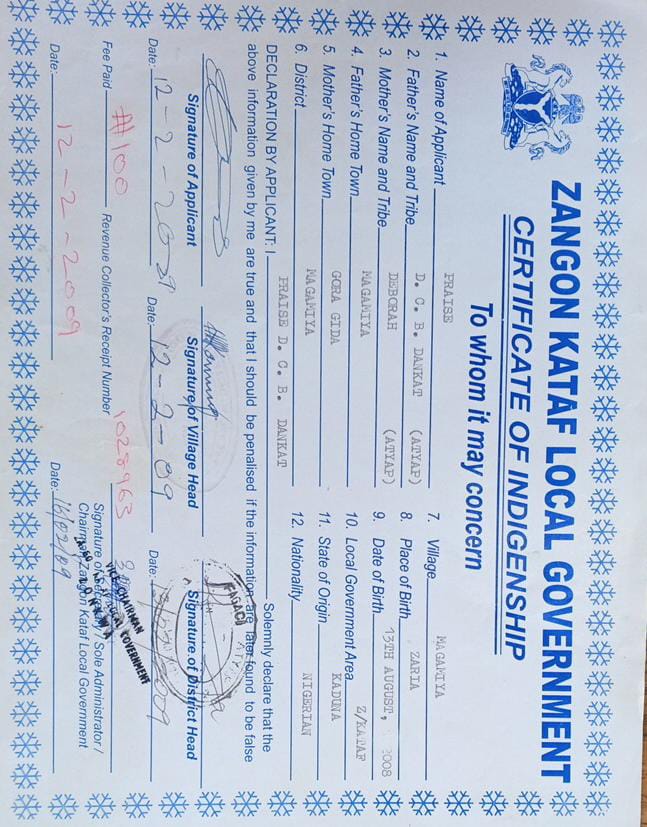 ZANGON KATAF LOCAL GOVERNMENT
CERTIFICATE OF INDIGENSHIP
To whom it may concern
1. Name of Applicant PRAISE
2. Father's Name and Tribe D. C. B. DANKAT (ATYAP)
3. Mother's Name and Tribe DEBORAH (ATYAP)
4. Father's Home Town MAGAMIYA
5. Mother's Home Town GORA GIDA
6. District MAGAMIYA
7. Village MAGAMIYA
8. Place of Birth ZARIA
9. Date of Birth 13TH AUGUST, 2008
10. Local Government Area Z/KATAF
11. State of Origin KADUNA
12. Nationality NIGERIAN
DECLARATION BY APPLICANT: I PRAISE D. C. B. DANKAT Solemnly declare that the
above information given by me are true and that I should be penalised if the information are later found to be false
Signature of Applicant
Signature of Village Head
Signature of District Head
Date: 12-2-2009
Date: 12-2-09
Date:
Fee Paid #100 Revenue Collector's Receipt Number 1028963
Signature of Secretary / Sole Administrator /
Chairman Zangon Kataf Local Government
VICE CHAIRMAN
Date: 12-2-2009
Date: